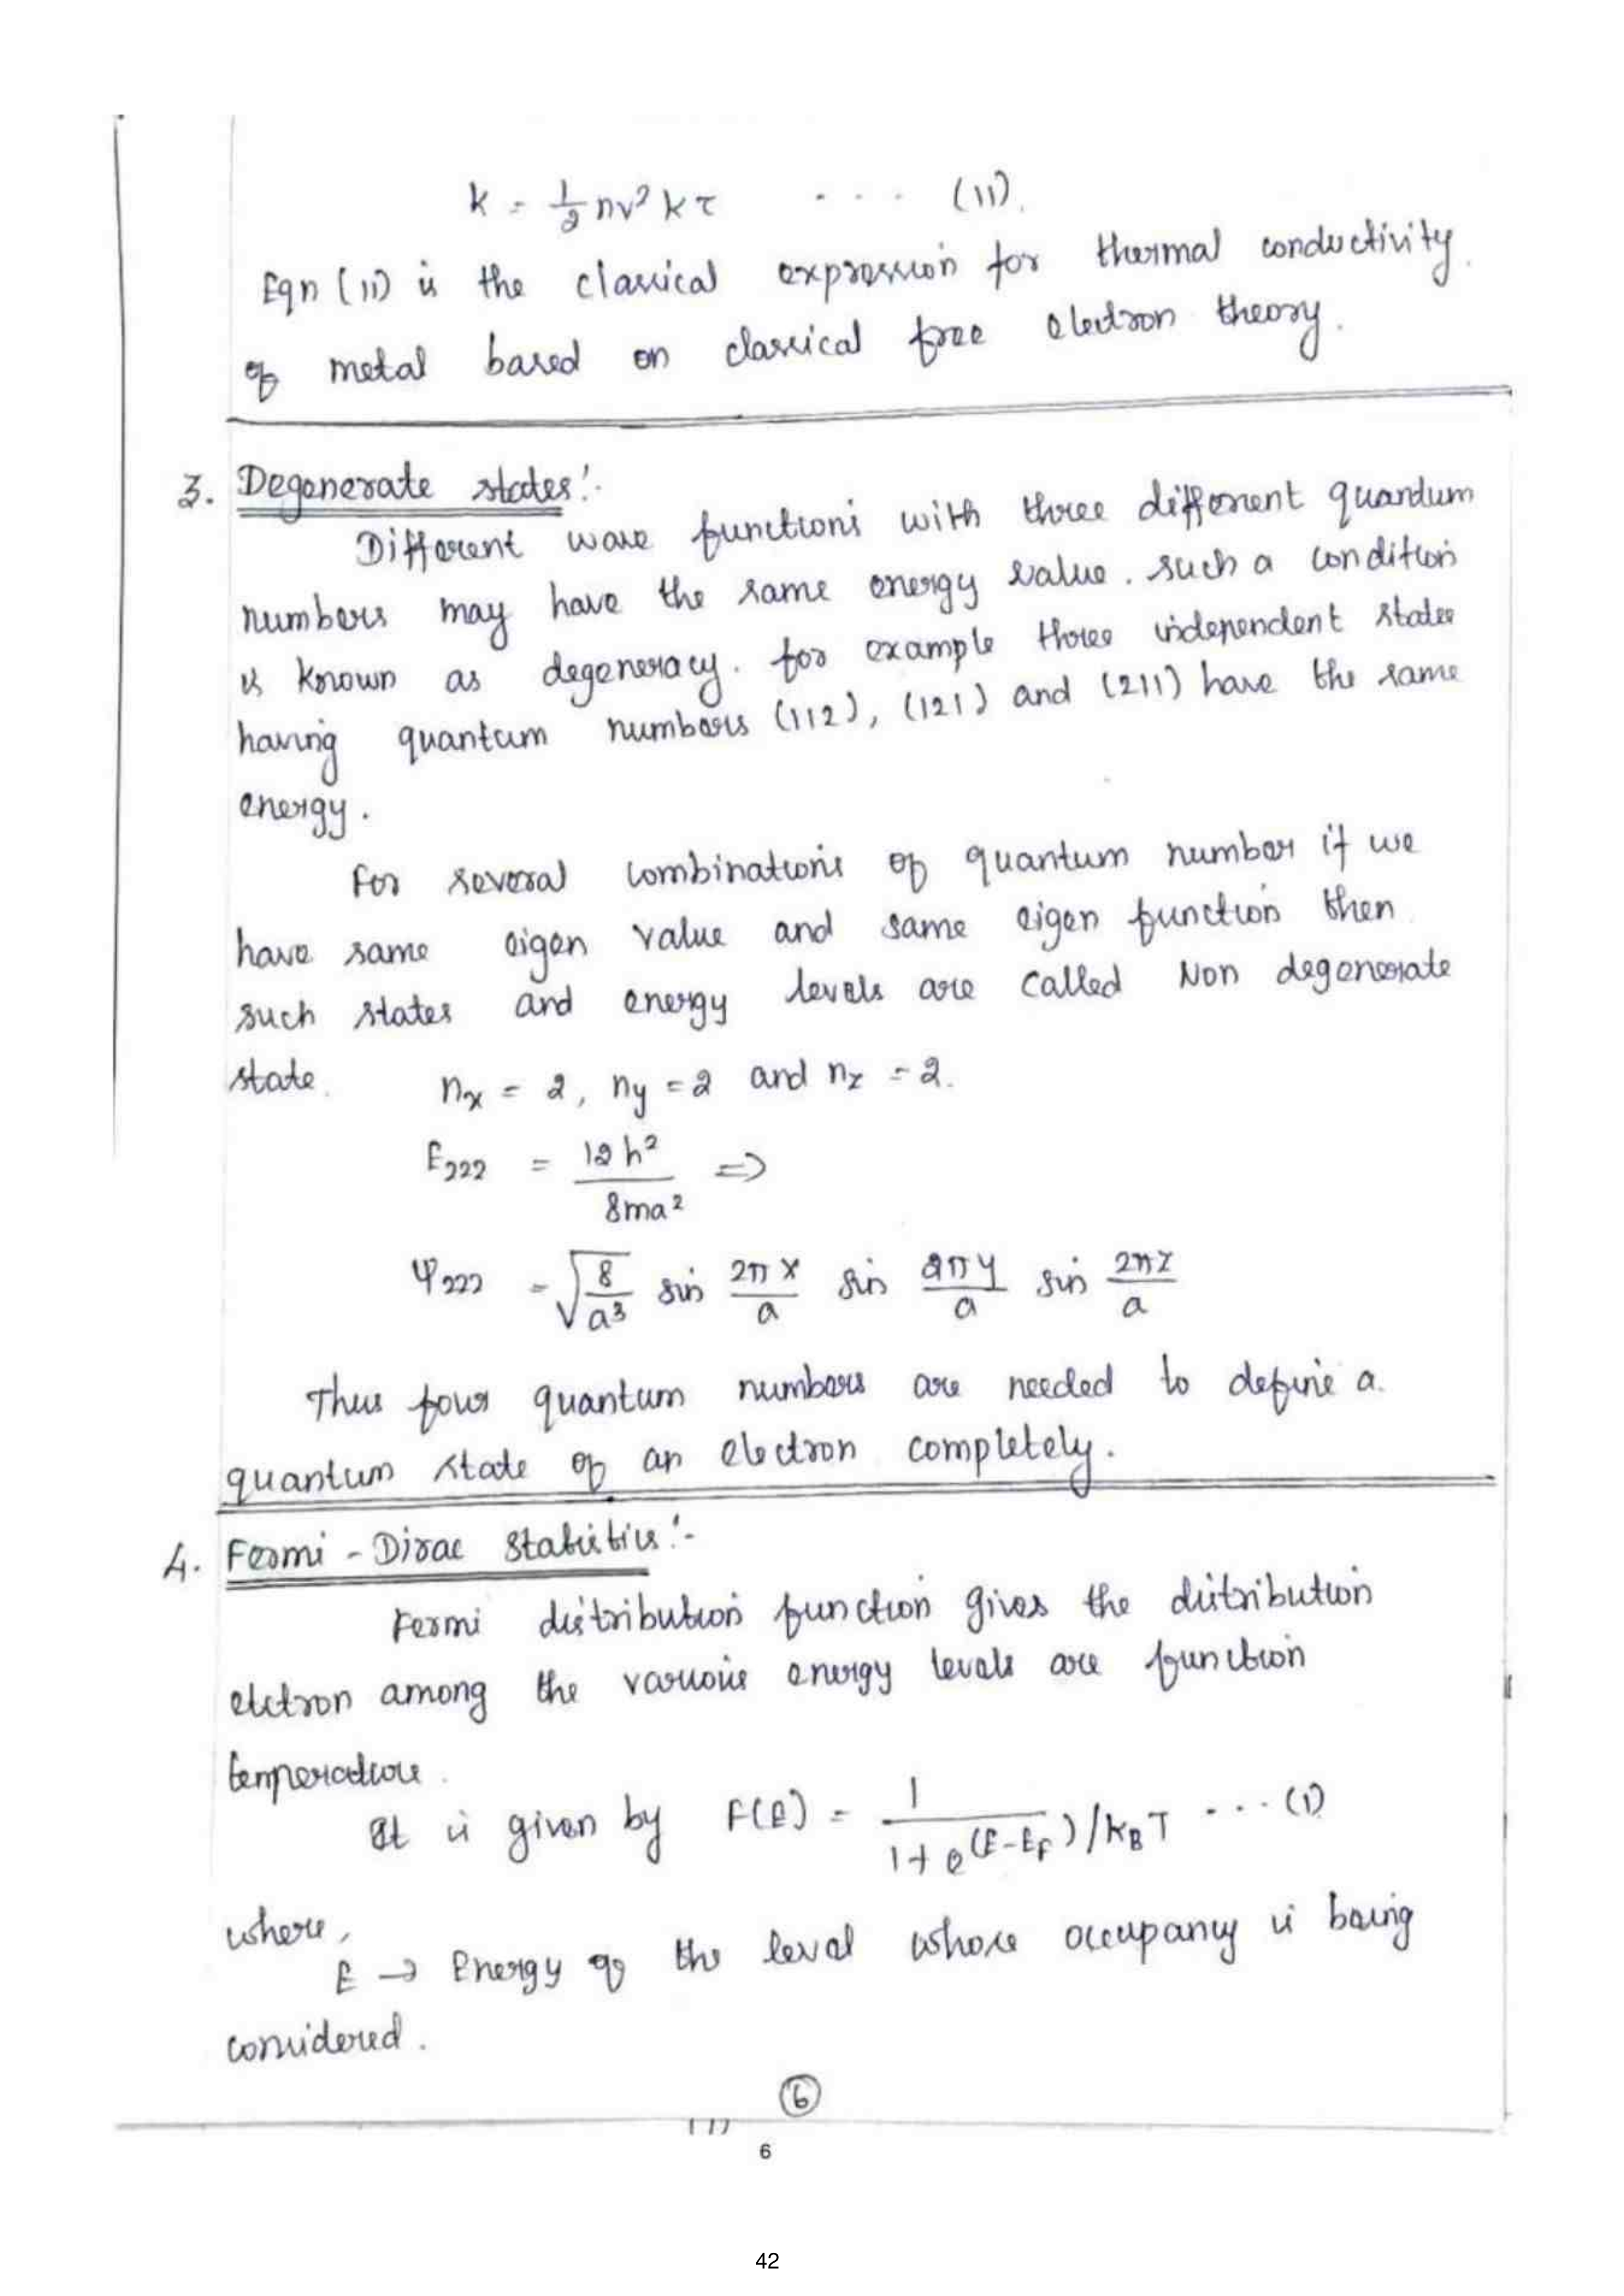 k = 1/2 nv² k τ . . . (11).
Eqn (11) is the classical expression for thermal conductivity.
of metal based on classical free electron theory.
3. Degenerate states:-
Different wave functions with three different quantum
numbers may have the same energy value. such a condition
is known as degeneracy. for example three independent states
having quantum numbers (112), (121) and (211) have the same
energy.
For several combinations of quantum number if we
have same eigen value and same eigen function then
such states and energy levels are called Non degenerate
state.
nx = 2, ny = 2 and nz = 2.
E222 = 12h²/8ma² =>
Ψ222 = √(8/a³) sin 2πx/a sin 2πy/a sin 2πz/a
Thus four quantum numbers are needed to define a.
quantum state of an electron completely.
4. Fermi - Dirac Statistics:-
Fermi distribution function gives the distribution
elctron among the various energy levels are function
temperature.
It is given by F(E) = 1/(1+e^(E-EF)/kBT) . . . (1)
where,
E → Energy of the level whose occupancy is being
considered.
6
6
42